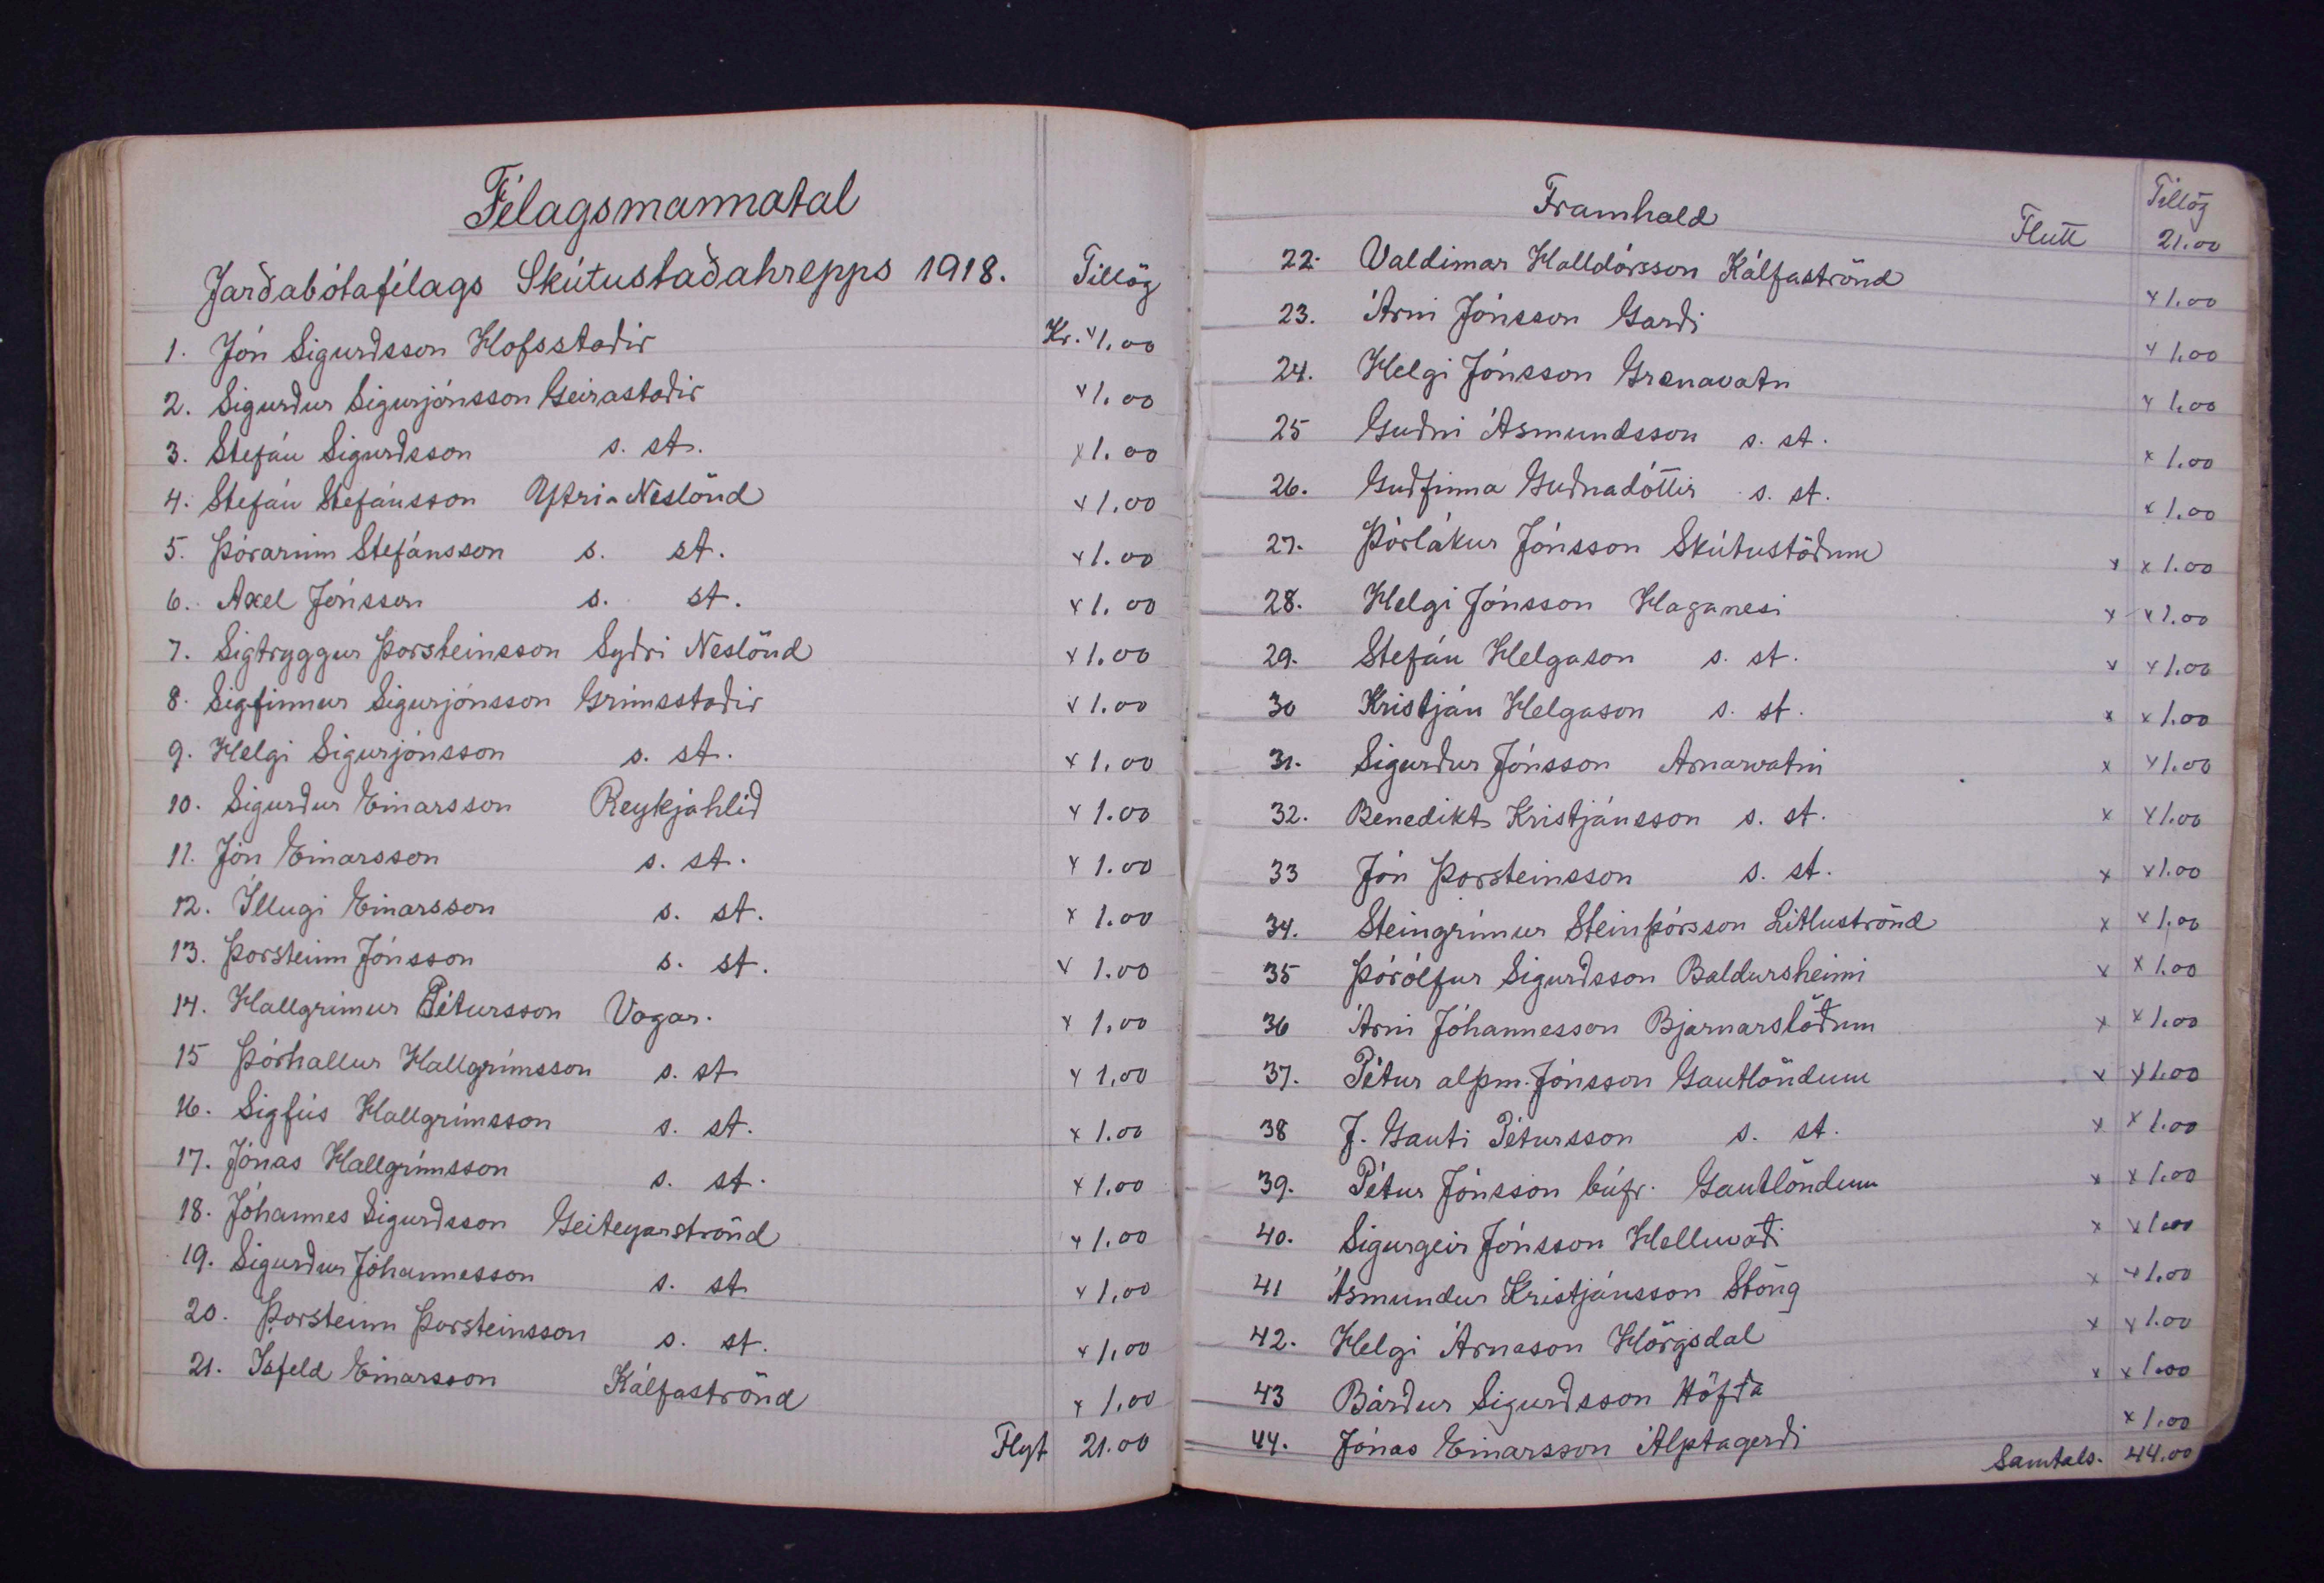 Félagsmannatal
Jarðabótafélags Skútustaðahrepps 1918. Tillög
1. Jón Sigurdsson Hofsstaðir Kr. x 1.00
2. Sigurdur Sigurjónsson Geirastaðir x 1.00
3. Stefán Sigurdsson s. st. x 1.00
4. Stefán Stefánsson Ytri-Neslönd x 1.00
5. Þórarinn Stefánsson s. st. x 1.00
6. Axel Jónsson s. st. x 1.00
7. Sigtryggur Þorsteinsson Syðri Neslönd x 1.00
8. Sigfinnur Sigurjónsson Grímsstaðir x 1.00
9. Helgi Sigurjónsson s. st. x 1.00
10. Sigurdur Einarsson Reykjahlíd x 1.00
11. Jón Einarsson s. st. x 1.00
12. Illugi Einarsson s. st. x 1.00
13. Þorsteinn Jónsson s. st. x 1.00
14. Hallgrímur Pétursson Vogar. x 1.00
15 Þórhallur Hallgrímsson s. st x 1.00
16. Sigfús Hallgrímsson s. st. x 1.00
17. Jónas Hallgrímsson s. st. x 1.00
18. Jóhannes Sigurdsson Geiteyarströnd x 1.00
19. Sigurdur Jóhannesson s. st x 1.00
20. Þorsteinn Þorsteinsson s. st. x 1.00
21. Ísfeld Einarsson Kálfaströnd x 1.00
Flyt 21.00
Framhald Flutt Tillög 21.00
22. Valdimar Halldórsson Kálfaströnd x 1.00
23. Árni Jónsson Garði x 1.00
24. Helgi Jónsson Grænavatn x 1.00
25 Guðni Ásmundsson s. st. x 1.00
26. Guðfinna Guðnadóttir s. st. x 1.00
27. Þórlákur Jónsson Skútustöðum x x 1.00
28. Helgi Jónsson Haganesi x x 1.00
29. Stefán Helgason s. st. x x 1.00
30 Kristján Helgason s. st. x x 1.00
31. Sigurður Jónsson Arnarvatni x x 1.00
32. Benedikt Kristjánsson s. st. x x 1.00
33 Jón Þorsteinsson s. st. x x 1.00
34. Steingrímur Steinþórsson Litluströnd x x 1.00
35 Þórólfur Sigurðsson Baldursheimi x x 1.00
36 Árni Jóhannesson Bjarnarstöðum x x 1.00
37. Pétur alþm. Jónsson Gautlöndum x x 1.00
38 J. Gauti Pétursson s. st. x x 1.00
39. Pétur Jónsson búfr. Gautlöndum x x 1.00
40. Sigurgeir Jónsson Helluvaði x x 1.00
41 Ásmundur Kristjánsson Stöng x x 1.00
42. Helgi Árnason Hörgsdal x x 1.00
43 Bárdur Sigurdsson Höfða x x 1.00
44. Jónas Einarsson Álptagerði x 1.00
Samtals. 44.00